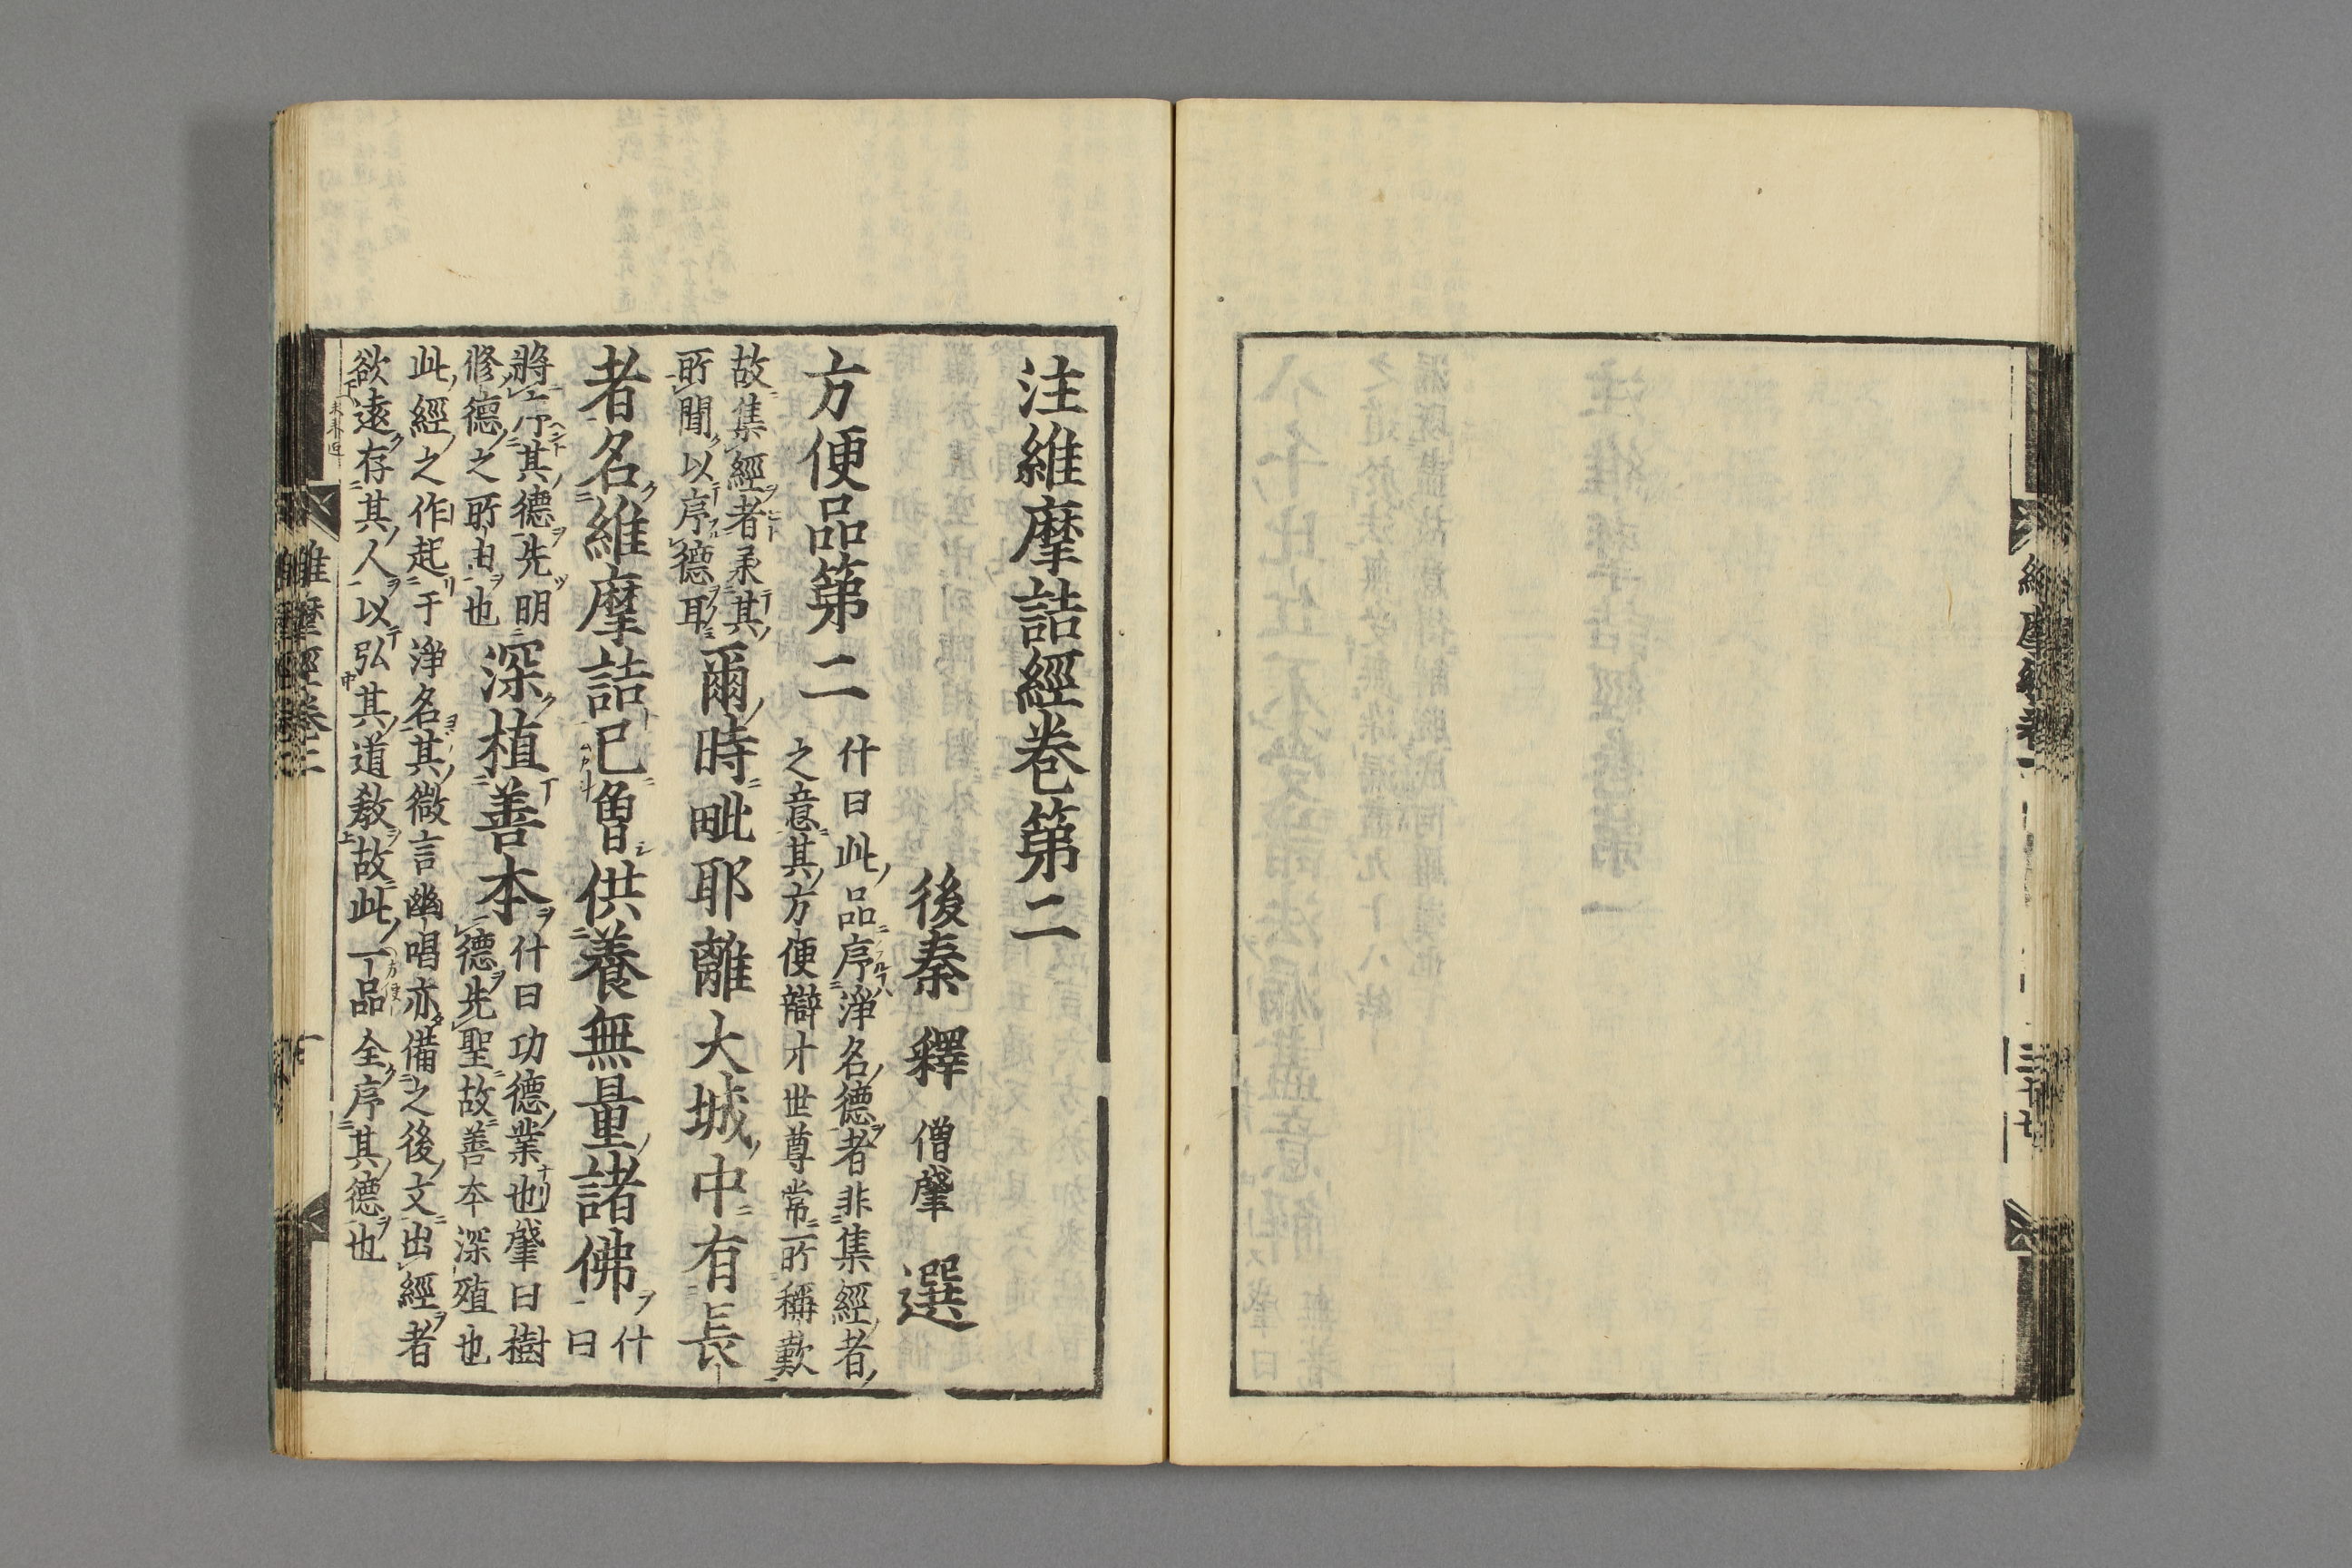 注維摩詰經巻第二
後秦 釋 僧肇 選
方便品第二
什曰此品序淨名德者非集經者
之意其方便辯才世尊常所稱歎
故集經者承其
所聞以序德耳
爾時毗耶離大城中有長
者名維摩詰已曾供養無量諸佛
什
曰
將序其德先明
修德之所由也
深植善本
什曰功德業也肇曰樹
德先聖故善本深殖也
此經之作起于淨名其微言幽唱亦備之後文出經者
欲遠存其人以弘其道教故此一品全序其德也
維摩經巻二